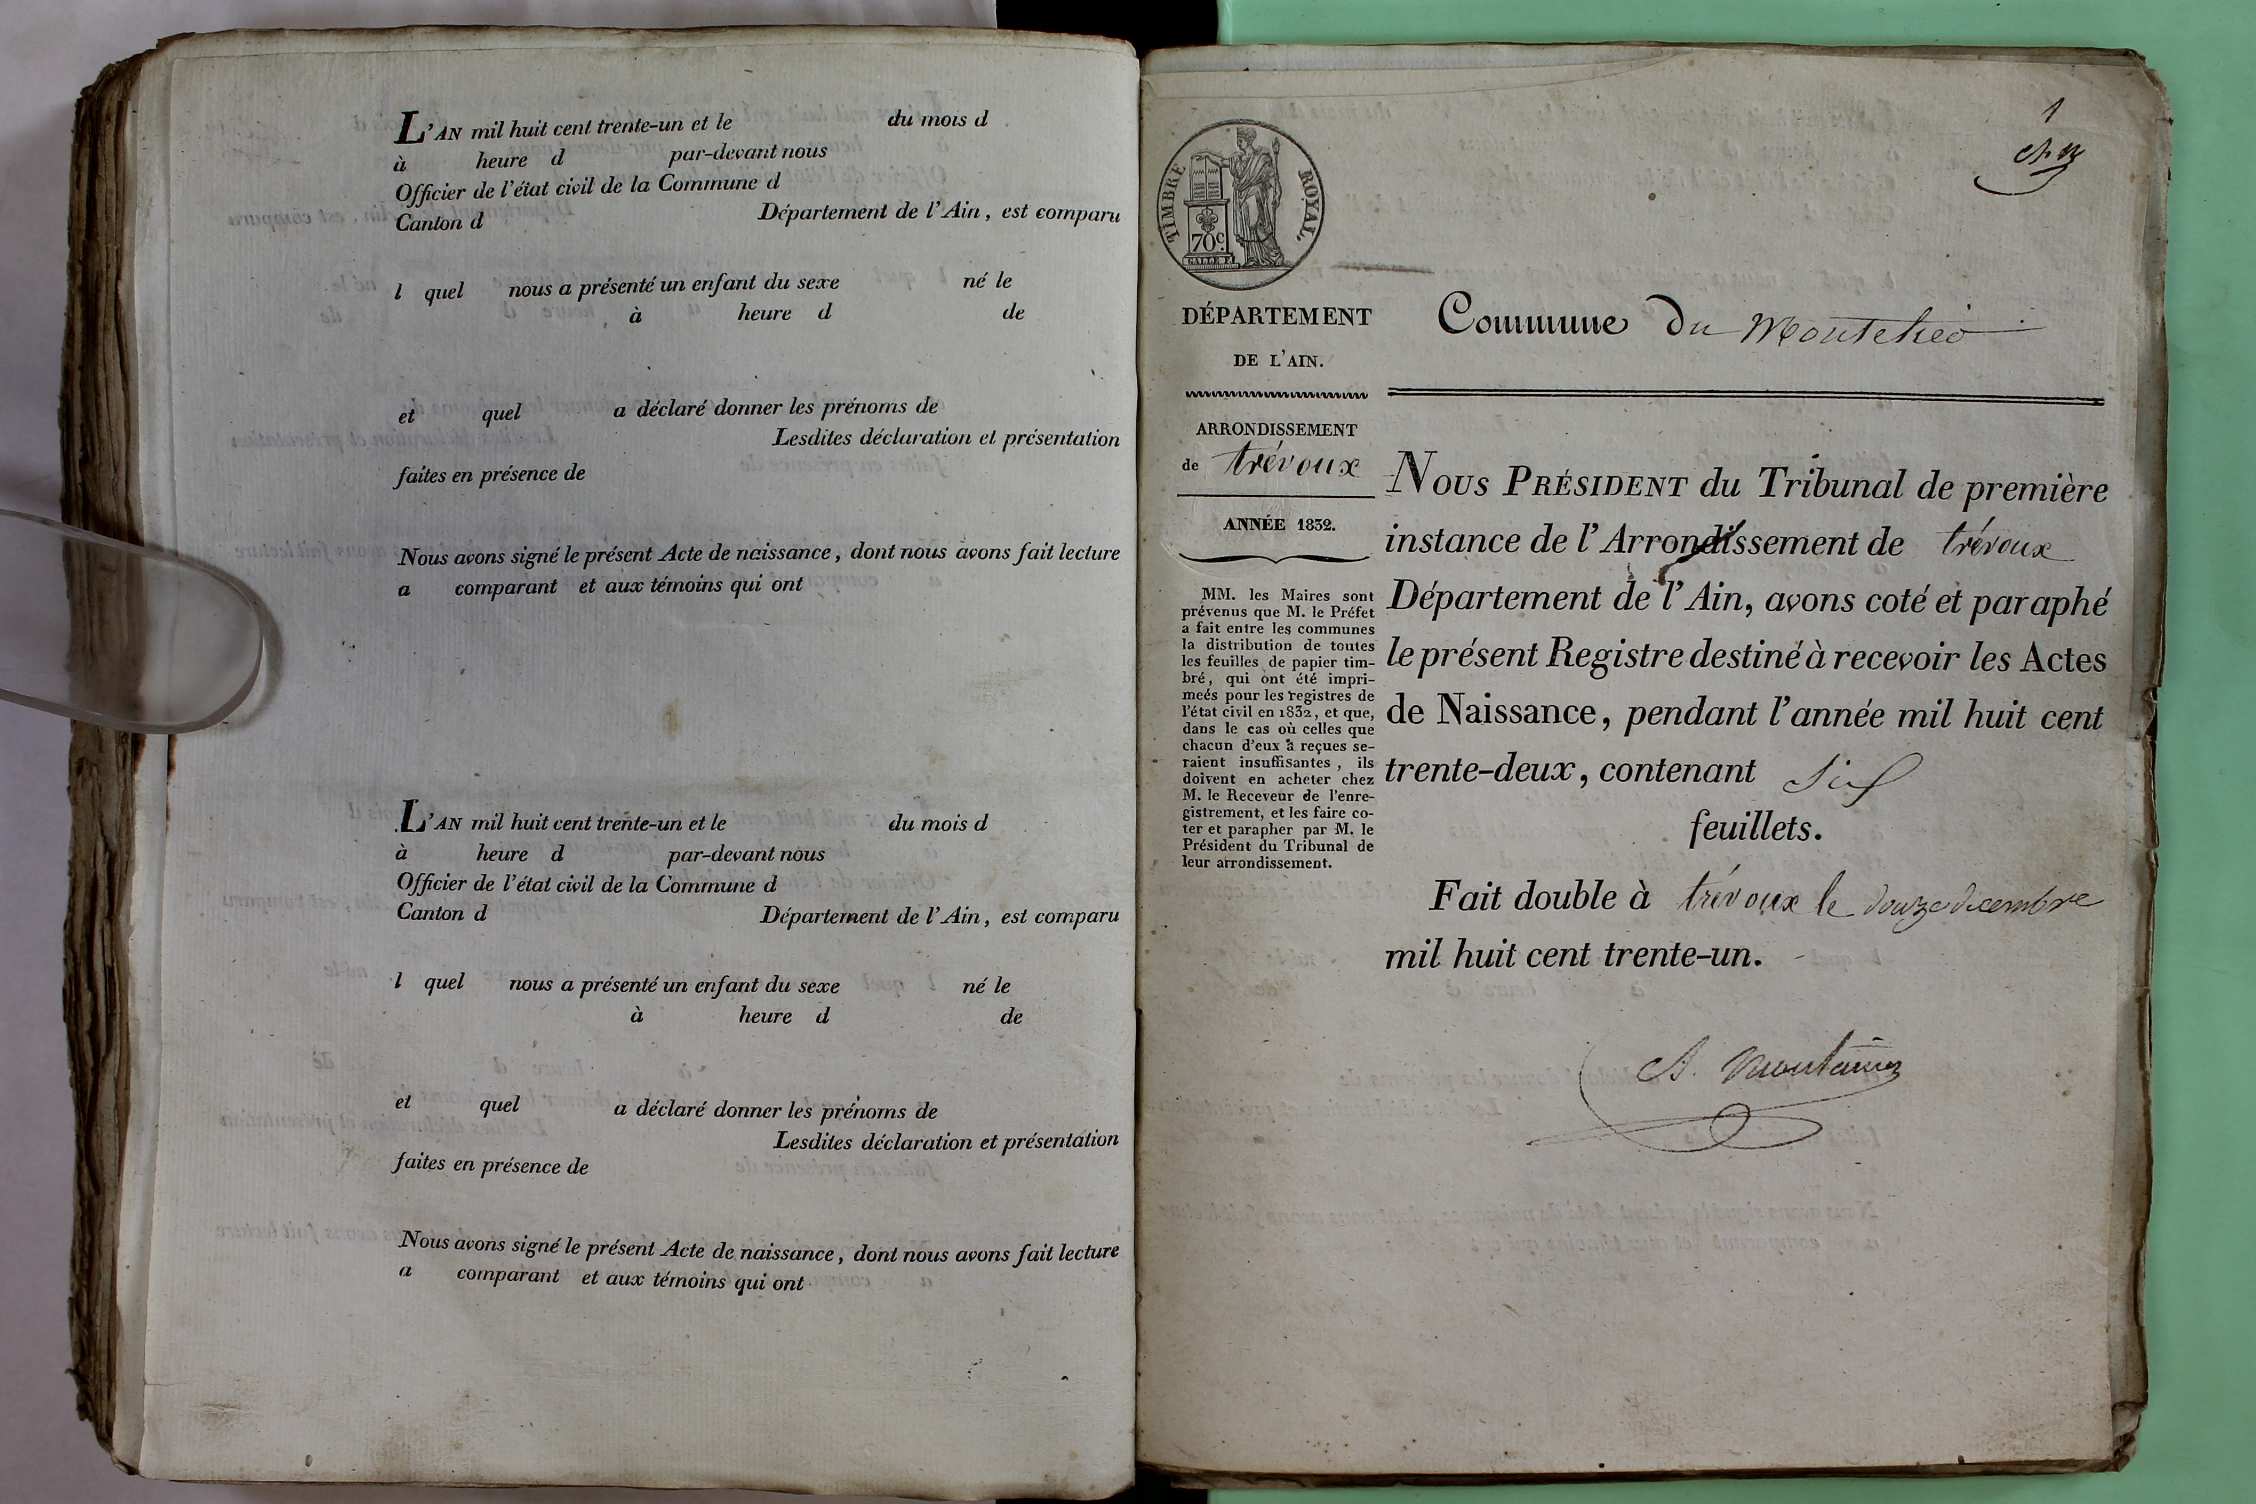 L'AN mil huit cent trente-un et le du mois d
à heure d par-devant nous
Officier de l'état civil de la Commune d
Canton d Département de l'Ain, est comparu
l quel nous a présenté un enfant du sexe né le
à heure d de
et quel a déclaré donner les prénoms de
Lesdites déclaration et présentation
faites en présence de
Nous avons signé le présent Acte de naissance, dont nous avons fait lecture
a comparant et aux témoins qui ont
L'AN mil huit cent trente-un et le du mois d
à heure d par-devant nous
Officier de l'état civil de la Commune d
Canton d Département de l'Ain, est comparu
l quel nous a présenté un enfant du sexe né le
à heure d de
et quel a déclaré donner les prénoms de
Lesdites déclaration et présentation
faites en présence de
Nous avons signé le présent Acte de naissance, dont nous avons fait lecture
a comparant et aux témoins qui ont
1
TIMBRE ROYAL.
70c.
DÉPARTEMENT
DE L'AIN.
ARRONDISSEMENT
de trévoux
ANNÉE 1832.
MM. les Maires sont
prévenus que M. le Préfet
a fait entre les communes
la distribution de toutes
les feuilles de papier tim-
bré, qui ont été impri-
meés pour les registres de
l'état civil en 1832, et que,
dans le cas où celles que
chacun d'eux a reçues se-
raient insuffisantes, ils
doivent en acheter chez
M. le Receveur de l'enre-
gistrement, et les faire co-
ter et parapher par M. le
Président du Tribunal de
leur arrondissement.
Commune du
NOUS PRÉSIDENT du Tribunal de première
instance de l'Arrondissement de trévoux
Département de l'Ain, avons coté et paraphé
le présent Registre destiné à recevoir les Actes
de Naissance, pendant l'année mil huit cent
trente-deux, contenant six
feuillets.
Fait double à trévoux le douze décembre
mil huit cent trente-un.